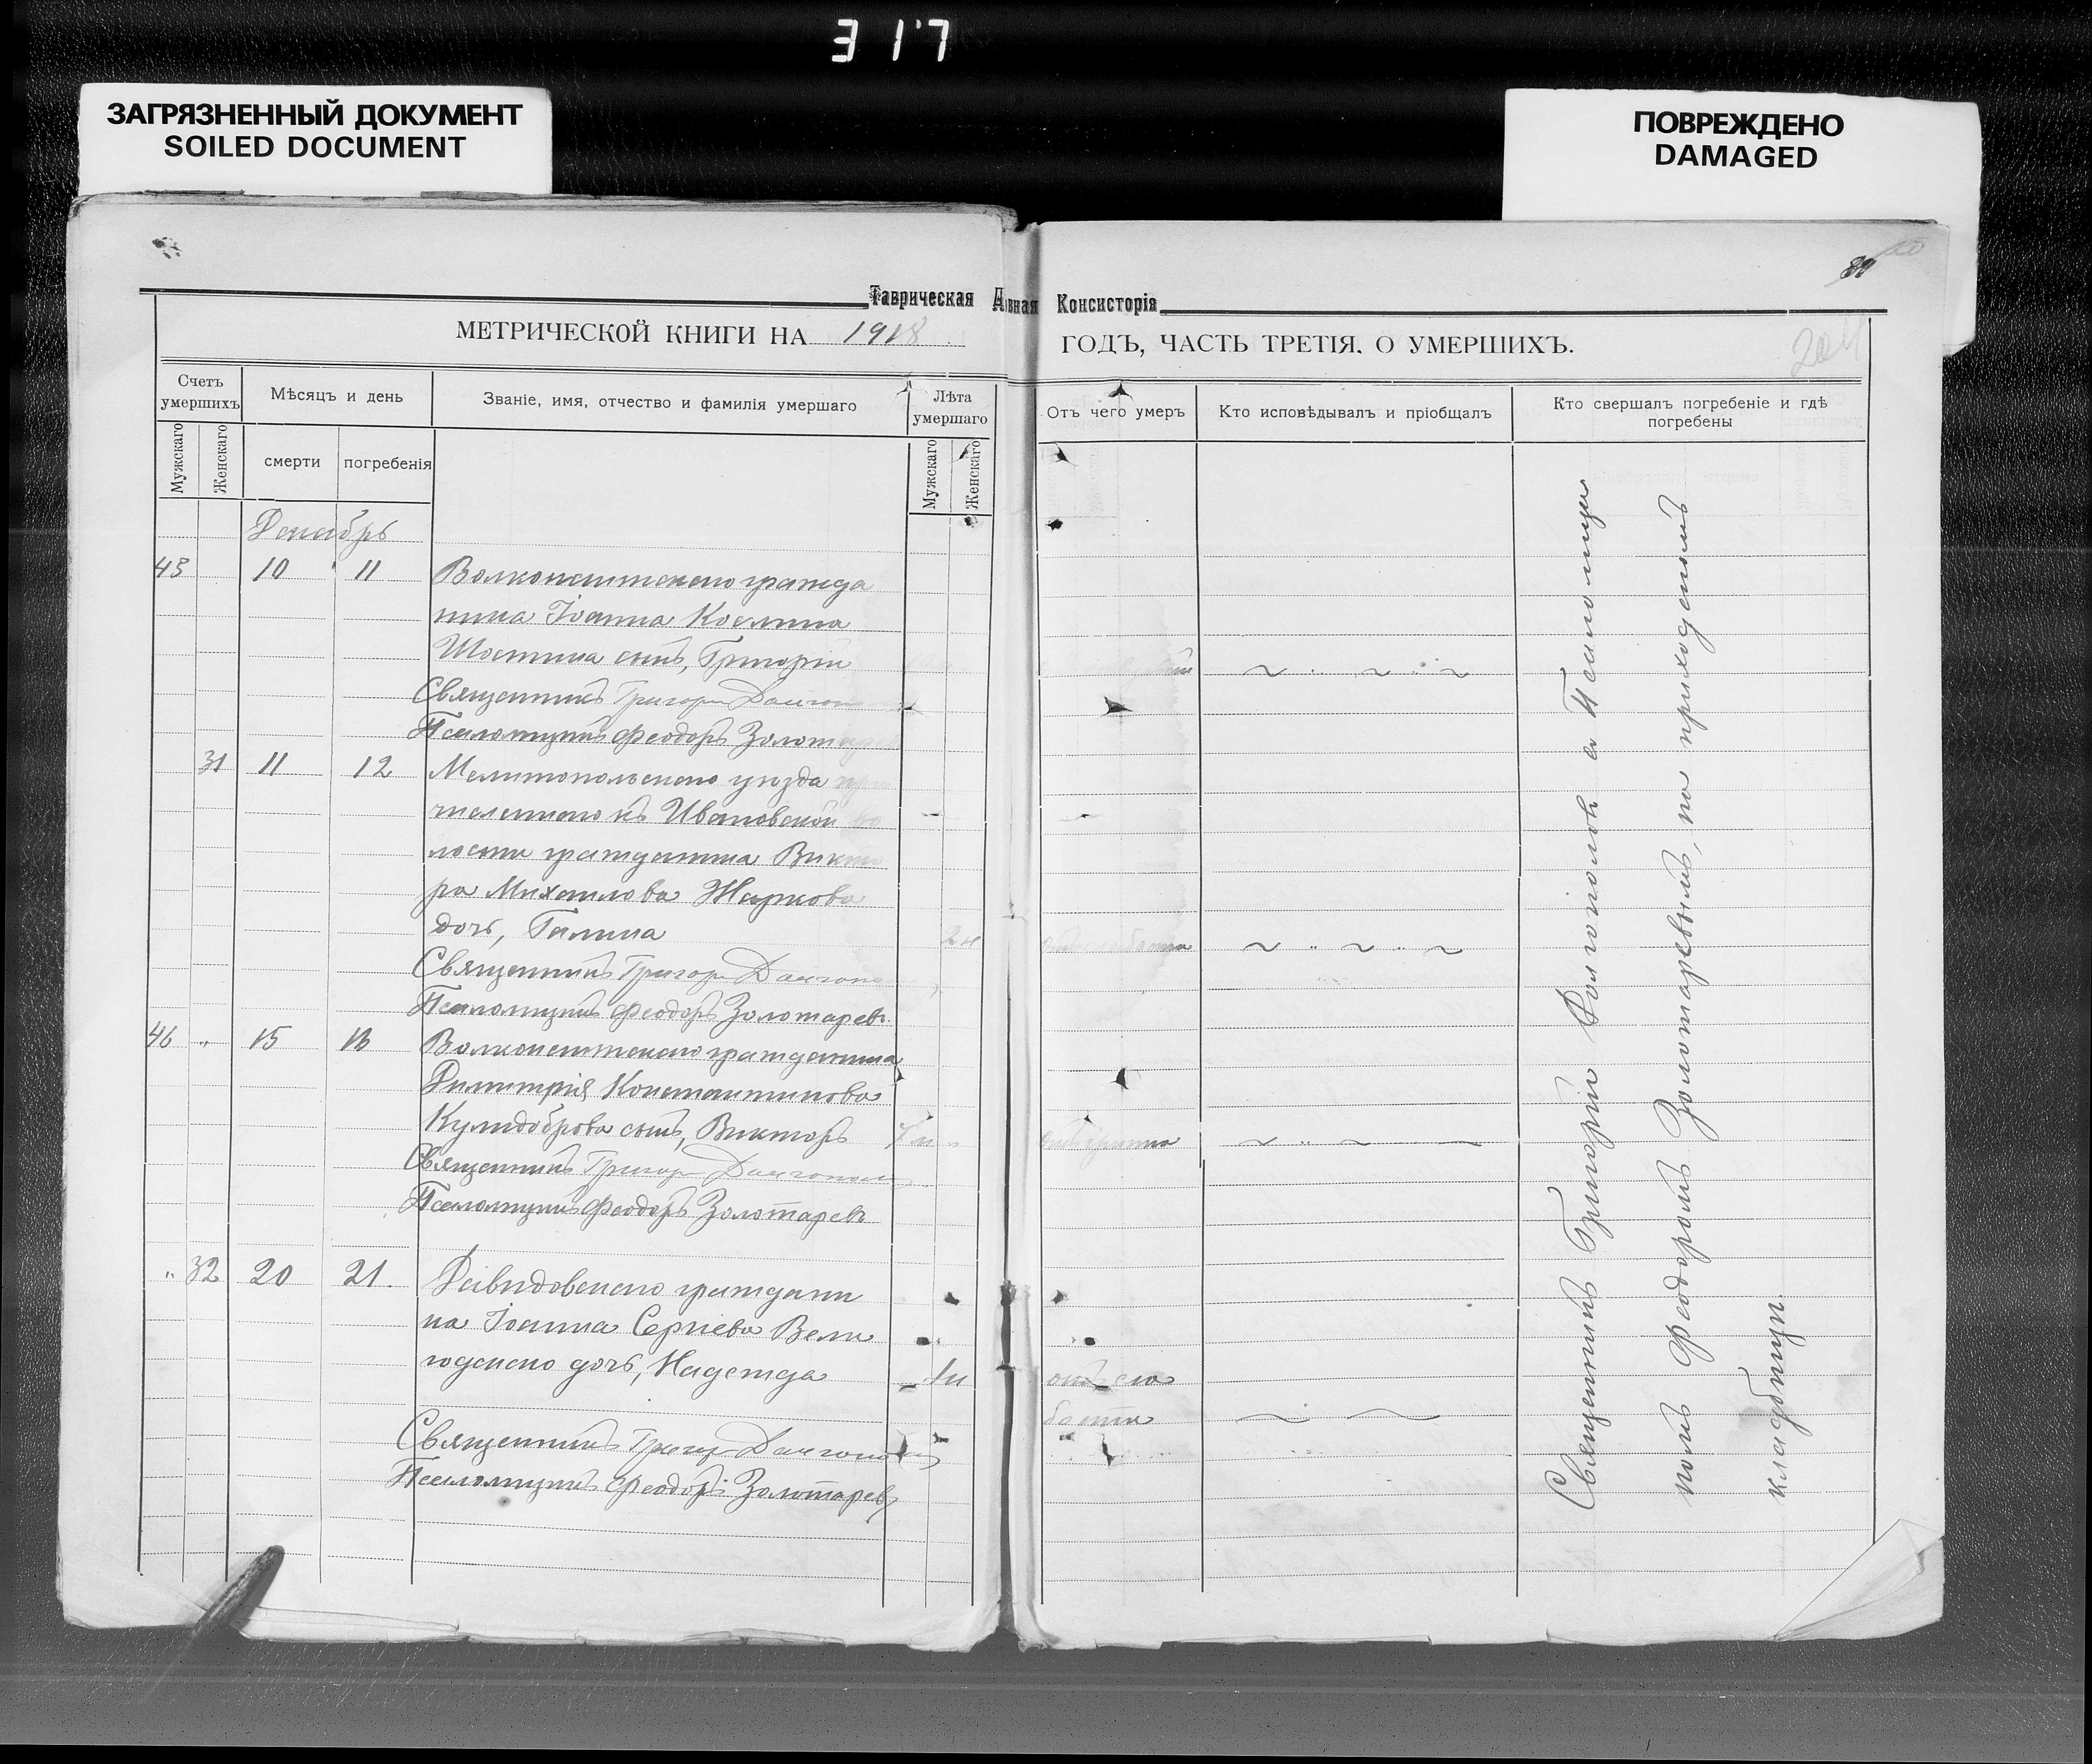 317
ЗАГРЯЗНЕННЫЙ ДОКУМЕНТ
SOILED DOCUMENT
ПОВРЕЖДЕНО
DAMAGED
Таврическая
Консисторія
МЕТРИЧЕСКОЙ КНИГИ НА 1918
ГОДЪ, ЧАСТЬ ТРЕТІЯ. О УМЕРШИХЪ.
204
Счетъ умершихъ
Мужскаго
Женскаго
Мѣсяцъ и день
смерти
погребенія
Званіе, имя, отчество и фамилія умершаго
Лѣта умершаго
Мужскаго
Женскаго
Отъ чего умеръ
Кто исповѣдывалъ и пріобщалъ
Кто свершалъ погребеніе и гдѣ погребены
Декабрь
45 10 11 Волконештскаго гражда
нина Іоанна
сынъ, Григорій
Священникъ Григор
Псаломщикъ Феодоръ
31 11 12 Мелитопольскаго уѣзда
численнаго къ Ивановской во
лости гражданина Викто
ра Михаилова Жаркова
дочь, Галина
Священникъ Григор
Псаломщикъ Феодоръ Золотаревъ
46 " 15 16 Волконештскаго гражданина
Димитрія Константинова
Кулидоброва сынъ, Викторъ
Священникъ Григор
Псаломщикъ Феодоръ Золотаревъ
" 32 20 21. Давидовскаго граждани
на Іоанна Сергіева Вели
годскаго дочь, Надежда
отъ сла
бости
Священникъ Григор
Псаломщикъ Феодоръ Золотаревъ
Священникъ Григорій Долгополовъ а Псаломщи
комъ Феодоромъ Золотаревымъ, на приходскомъ
кладбищи.